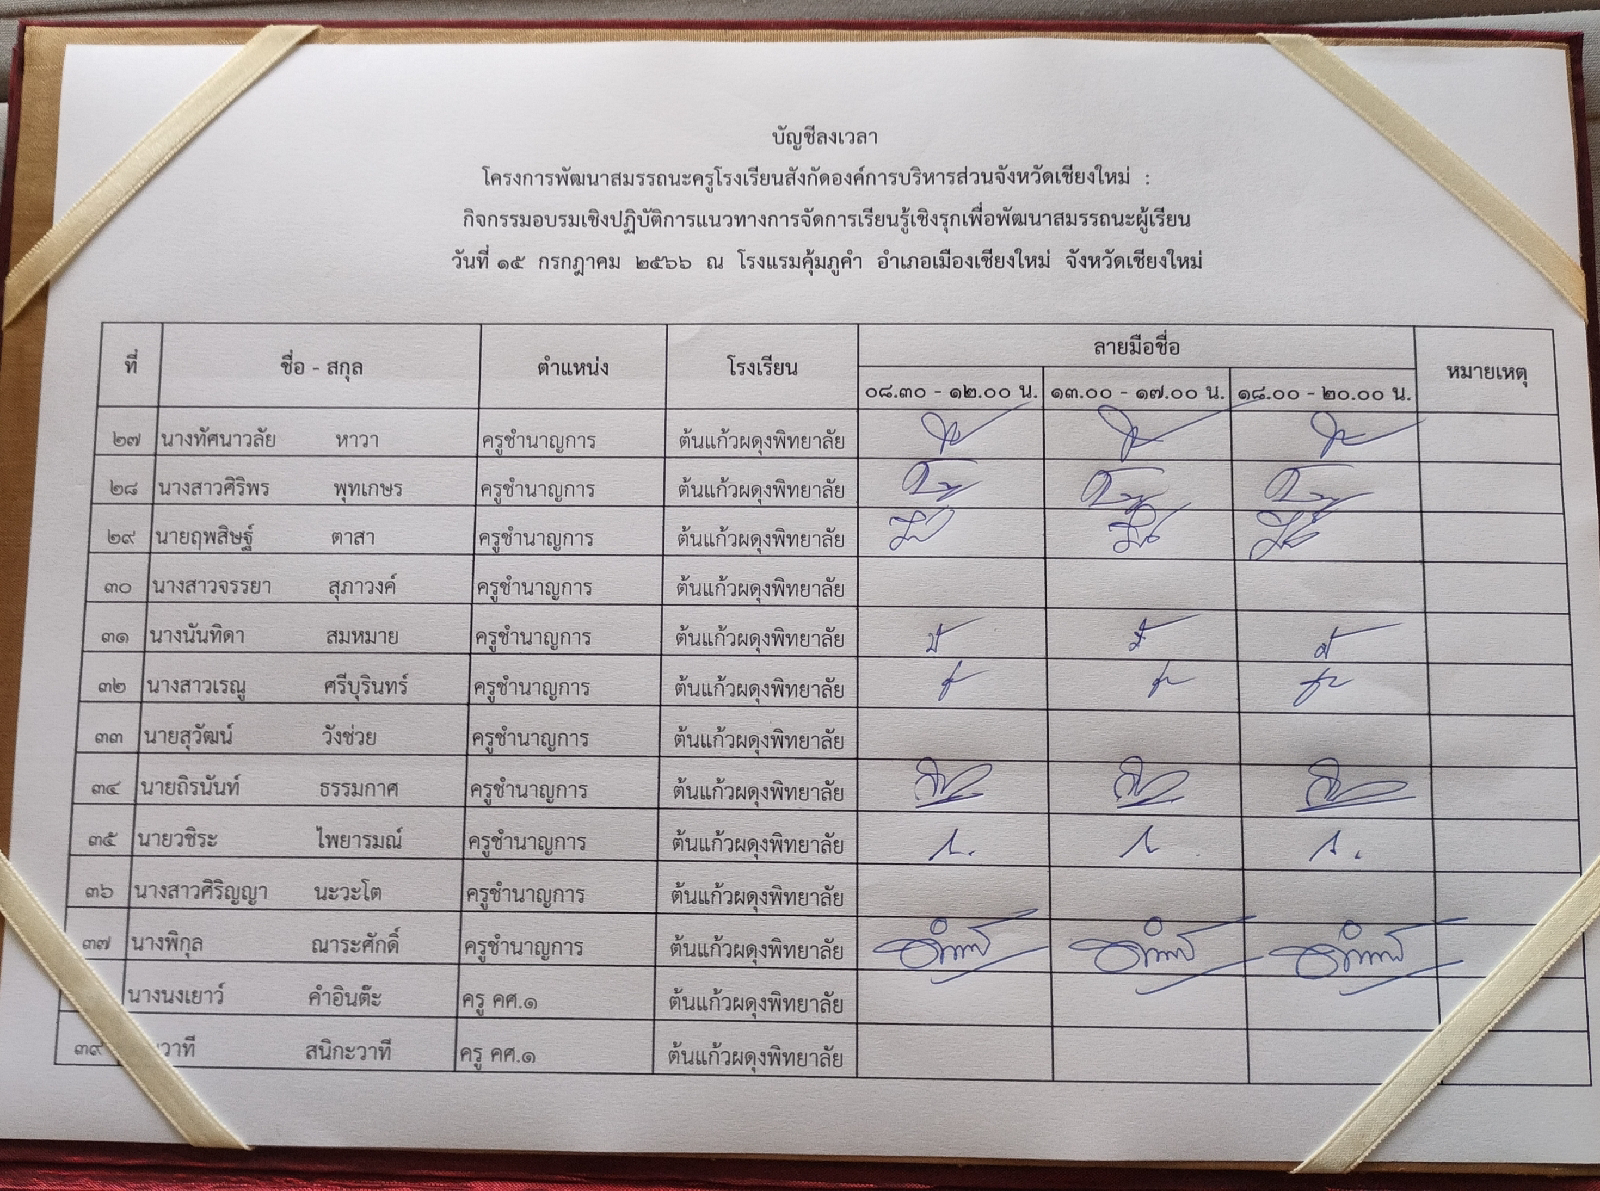 บัญชีลงเวลา
โครงการพัฒนาสมรรถนะครูโรงเรียนสังกัดองค์การบริหารส่วนจังหวัดเชียงใหม่ :
กิจกรรมอบรมเชิงปฏิบัติการแนวทางการจัดการเรียนรู้เชิงรุกเพื่อพัฒนาสมรรถนะผู้เรียน
วันที่ ๑๕ กรกฎาคม ๒๕๖๖ ณ โรงแรมคุ้มภูคำ อำเภอเมืองเชียงใหม่ จังหวัดเชียงใหม่
ที่ ชื่อ - สกุล ตำแหน่ง โรงเรียน ลายมือชื่อ หมายเหตุ
๐๘.๓๐ - ๑๒.๐๐ น. ๑๓.๐๐ - ๑๗.๐๐ น. ๑๘.๐๐ - ๒๐.๐๐ น.
๒๗ นางทัศนาวลัย หาวา ครูชำนาญการ ต้นแก้วผดุงพิทยาลัย
๒๘ นางสาวศิริพร พุทเกษร ครูชำนาญการ ต้นแก้วผดุงพิทยาลัย
๒๙ นายฤพสิษฐ์ ตาสา ครูชำนาญการ ต้นแก้วผดุงพิทยาลัย
๓๐ นางสาวจรรยา สุภาวงค์ ครูชำนาญการ ต้นแก้วผดุงพิทยาลัย
๓๑ นางนันทิดา สมหมาย ครูชำนาญการ ต้นแก้วผดุงพิทยาลัย
๓๒ นางสาวเรณู ศรีบุรินทร์ ครูชำนาญการ ต้นแก้วผดุงพิทยาลัย
๓๓ นายสุวัฒน์ วังช่วย ครูชำนาญการ ต้นแก้วผดุงพิทยาลัย
๓๔ นายถิรนันท์ ธรรมกาศ ครูชำนาญการ ต้นแก้วผดุงพิทยาลัย
๓๕ นายวชิระ ไพยารมณ์ ครูชำนาญการ ต้นแก้วผดุงพิทยาลัย
๓๖ นางสาวศิริญญา นะวะโต ครูชำนาญการ ต้นแก้วผดุงพิทยาลัย
๓๗ นางพิกุล ณาระศักดิ์ ครูชำนาญการ ต้นแก้วผดุงพิทยาลัย
นางนงเยาว์ คำอินต๊ะ ครู คศ.๑ ต้นแก้วผดุงพิทยาลัย
๓๙ วาที สนิกะวาที ครู คศ.๑ ต้นแก้วผดุงพิทยาลัย